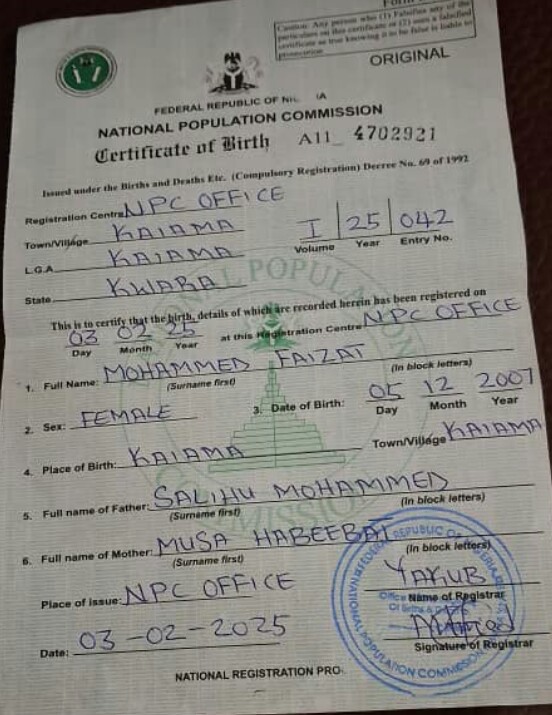 Caution: Any person who (1) Falsifies any of the
particulars on this certificate or (2) uses a falsified
certificate as true knowing it to be false is liable to
prosecution
ORIGINAL
FEDERAL REPUBLIC OF
NATIONAL POPULATION COMMISSION
Certificate of Birth A11 4702921
Issued under the Births and Deaths Etc. (Compulsory Registration) Decree No. 69 of 1992
Registration Centre NPC OFFICE
Town/Village KAIAMA
I 25 042
Volume Year Entry No.
L.G.A KAIAMA
State KWARA
This is to certify that the birth, details of which are recorded herein has been registered on
03 02 25 at this Registration Centre NPC OFFICE
Day Month Year
1. Full Name: MOHAMMED FAIZAT
(Surname first) (In block letters)
2. Sex: FEMALE 3. Date of Birth: 05 12 2007
Day Month Year
4. Place of Birth: KAIAMA Town/Village KAIAMA
5. Full name of Father: SALIHU MOHAMMED
(Surname first) (In block letters)
6. Full name of Mother: MUSA HABEEBAT
(Surname first) (In block letters)
Place of issue: NPC OFFICE YAKUB
Name of Registrar
Date: 03-02-2025
Signature of Registrar
NATIONAL REGISTRATION PRO